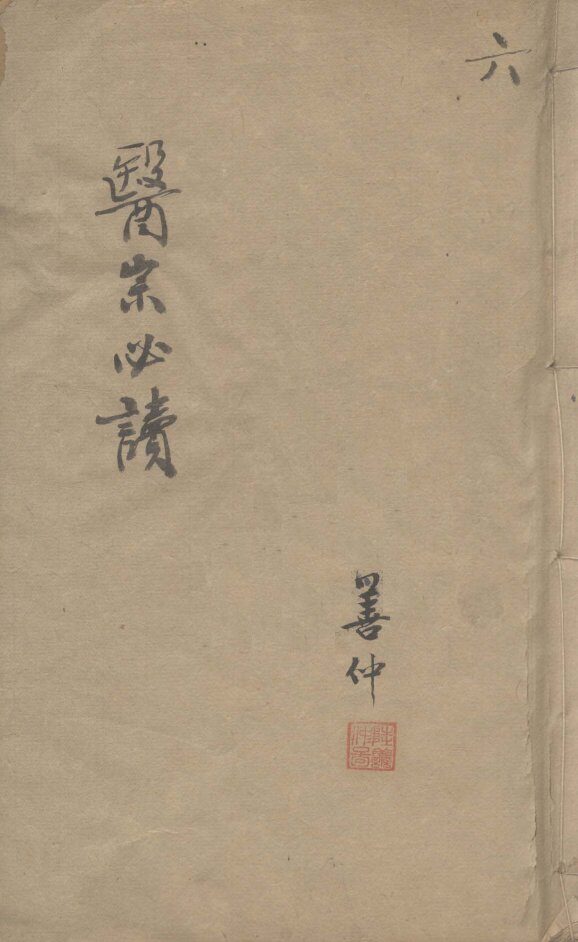 六
醫宗必讀
善仲